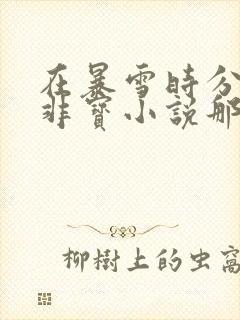 在暴雪時分
非寶小說那
柳樹上的虫窩